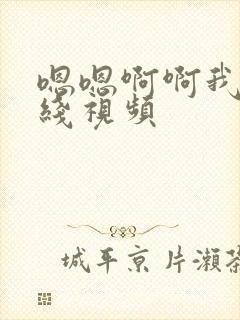 嗯嗯啊啊我
綫視頻
城平京 片瀨茶